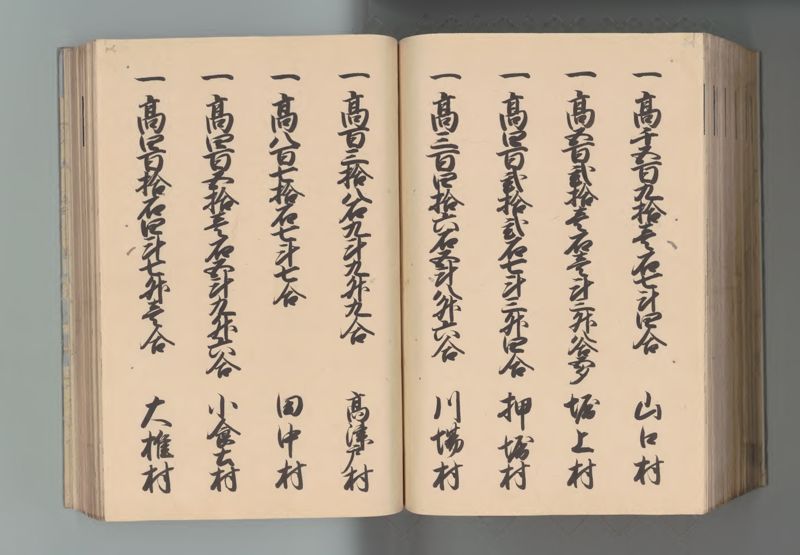 一 高千六百九拾壱石七斗四合 山口村
一 高五百弐拾壱石壱斗三升八合夕 堀上村
一 高四百弐拾弐石七斗三升四合 押堀村
一 高三百四拾六石五斗八升六合 川場村
一 高百三拾八石九斗九升九合 高津戸村
一 高八百七拾石七斗七合 田中村
一 高四百五拾壱石五斗九升六合 小倉土村
一 高四百拾石四斗七升壱合 大椎村